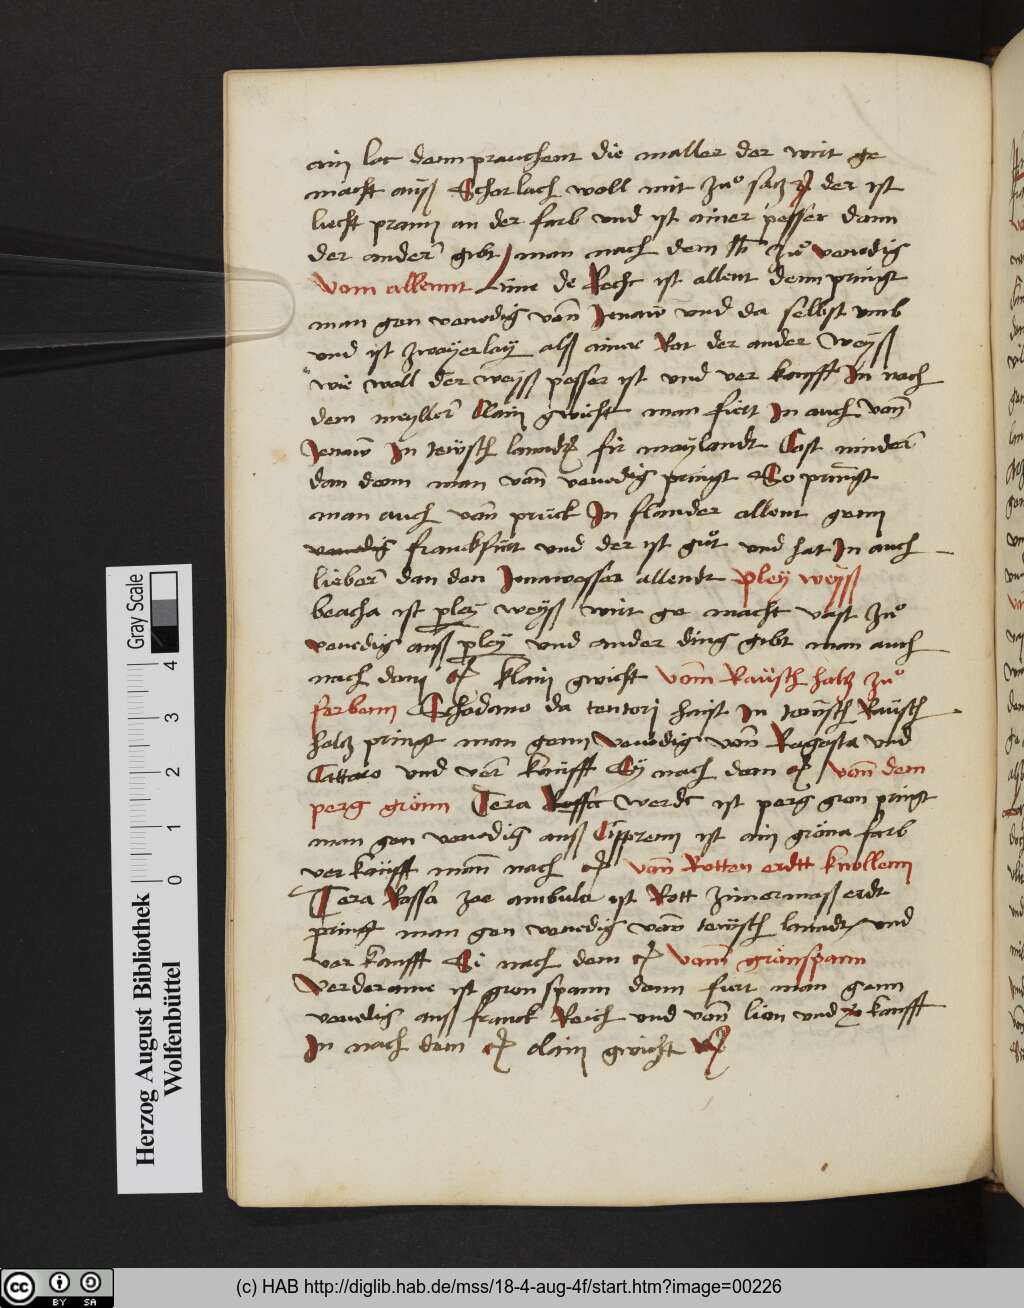 ain lot denn prauchent die maller der wirt ge
macht auß Scharlach woll mit zuͦ satz der ist
liecht praun an der farb vnd ist ainer pesser dann
der ander gibt man nach dem lb zuͦ venedig
Vom allennt Lume de Rocho ist allent denn pringt
man gen venedig von Jenaw vnd da selbst vmb
vnd ist zwayerlay alß ainer Rot der ander Weyß
wie woll der weyß pesser ist vnd ver kaufft In nach
dem meyller Clain gwicht man fiert In auch von
Jenaw In tewsch lanndt fir maylandt Cost minder
dan denn man von venedig pringt So pringt
man auch von prück In flander allent genn
venedig franckfürt vnd der ist guͦt vnd hat In auch
lieber dan den Jenawesser allendt pley weyß
beacha ist pley weyß wirt ge macht vast zuͦ
venedig auß pley vnd ander ding gibt man auch
nach dem klain gwicht vom Rausch holtz zuͦ
ferbenn Schodano da tentori haist In tewsch Rausch
holtz pringt man genn Venedig von Ragassa vnd
Cattaro vnd ver kaufft Sy nach dem von dem
perg grönn Tera werdt ist perg gron pringt
man gen venedig auß Cipprenn ist ain gröna farb
ver kaufft mann nach von Rotten erdtt knollenn
Tera Rossa zoe ambula ist Rott zimermaß erdt
pringt man gen venedig von tewsch lanndt vnd
ver kaufft Si nach dem vonn grönspann
Verderame ist gron spann denn fiert man genn
venedig auß franck Reich vnd von lion vnd kaufft
In nach dem clain gwicht
Gray Scale
0 1 2 3 4
Herzog August Bibliothek
Wolfenbüttel
cc BY SA
(c) HAB http://diglib.hab.de/mss/18-4-aug-4f/start.htm?image=00226